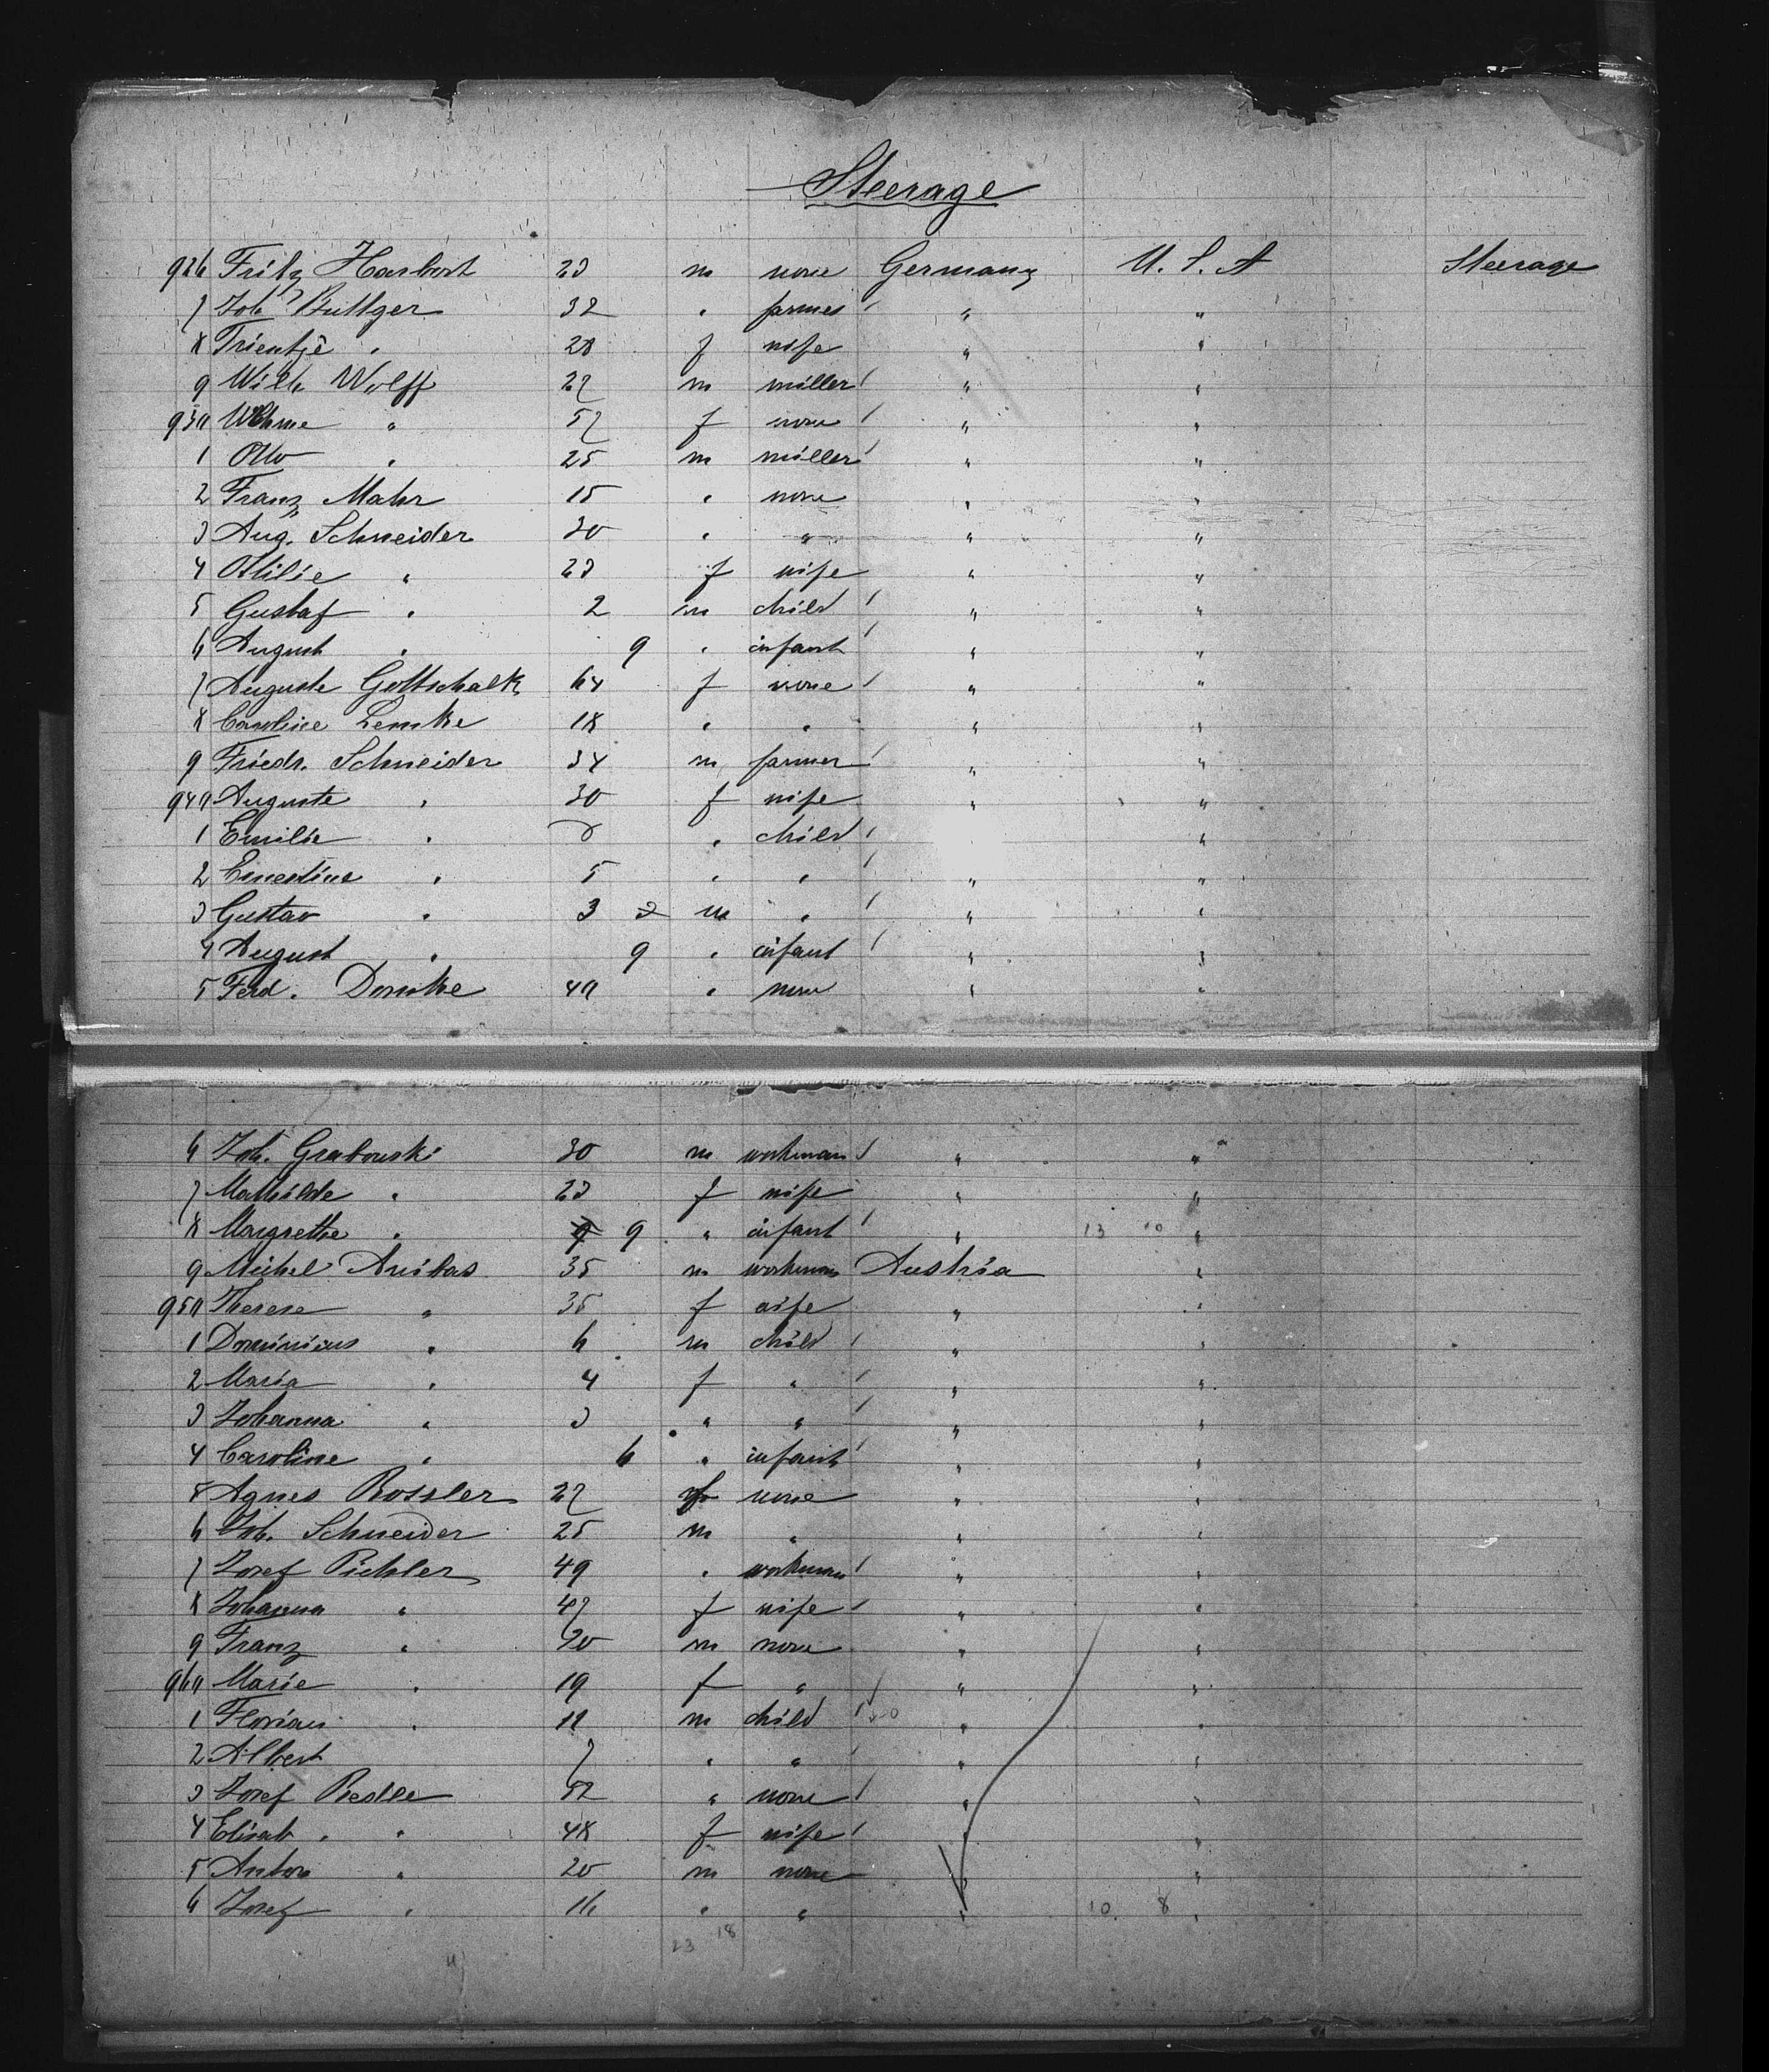 Steerage
926 Fritz Harbort 23 m none Germany U. S. A Steerage
7 Joh Buttger 32 " farmer " "
8 Trientje " 28 f wife " "
9 Wilh. Wolff 27 m miller " "
930 Wilhme " 57 f none " "
1 Otto " 25 m miller " "
2 Franz Mahr 15 " none " "
3 Aug. Schneider 30 " " " "
4 Otilie " 23 f wife " "
5 Gustaf " 2 m child " "
6 August " 9 " infant " "
7 Auguste Gottschalk 64 f none " "
8 Caroline Lemke 18 " " " "
9 Friedr. Schneider 34 m farmer " "
940 Auguste " 30 f wife " "
1 Emilie " " child "
2 Ernestine " 5 " " " "
3 Gustav " 3 m " " "
4 August " 9 " infant " "
5 Ferd. Domke 40 " none " "
6 Joh. Grabowski 30 m workman " "
7 Mathilde " 23 f wife " "
8 Margrethe " 9 " infant " 13 10 "
9 Michel Anibas 35 m workman Austria "
950 Therese " 35 f wife " "
1 Dominicus " 6 m child " "
2 Maria " 4 f " " "
3 Johanna " 3 " " " "
4 Caroline " 6 " infant " "
5 Agnes Rossler 27 f none " "
6 Joh. Schneider 25 m " " "
7 Josef Pichler 49 " workman " "
8 Johanna " 47 f wife " "
9 Franz " 20 m none " "
960 Marie " 19 f " " "
1 Florian " 11 m child " "
2 Albert 7 " " " "
3 Josef 52 " none " "
4 Elisab. " 48 f wife " "
5 Anton " 20 m none " "
6 Josef " 16 " " " 10 8 "
23 18